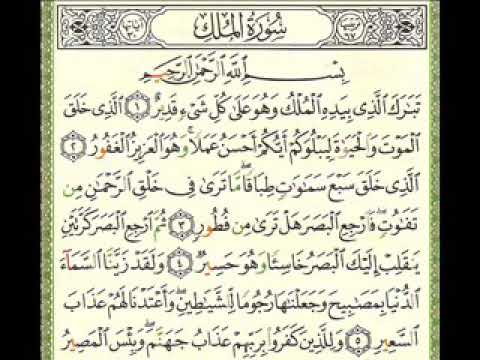 سُورَةُ الْمُلْكِ
بِسْمِ اللَّهِ الرَّحْمَٰنِ الرَّحِيمِ
تَبَارَكَ الَّذِي بِيَدِهِ الْمُلْكُ وَهُوَ عَلَىٰ كُلِّ شَيْءٍ قَدِيرٌ ١ الَّذِي خَلَقَ
الْمَوْتَ وَالْحَيَوٰةَ لِيَبْلُوَكُمْ أَيُّكُمْ أَحْسَنُ عَمَلًا ۚ وَهُوَ الْعَزِيزُ الْغَفُورُ ٢
الَّذِي خَلَقَ سَبْعَ سَمَٰوَٰتٍ طِبَاقًا ۖ مَّا تَرَىٰ فِي خَلْقِ الرَّحْمَٰنِ مِن
تَفَٰوُتٍ ۖ فَارْجِعِ الْبَصَرَ هَلْ تَرَىٰ مِن فُطُورٍ ٣ ثُمَّ ارْجِعِ الْبَصَرَ كَرَّتَيْنِ
يَنقَلِبْ إِلَيْكَ الْبَصَرُ خَاسِئًا وَهُوَ حَسِيرٌ ٤ وَلَقَدْ زَيَّنَّا السَّمَاءَ
الدُّنْيَا بِمَصَٰبِيحَ وَجَعَلْنَٰهَا رُجُومًا لِّلشَّيَٰطِينِ ۖ وَأَعْتَدْنَا لَهُمْ عَذَابَ
السَّعِيرِ ٥ وَلِلَّذِينَ كَفَرُوا بِرَبِّهِمْ عَذَابُ جَهَنَّمَ ۖ وَبِئْسَ الْمَصِيرُ